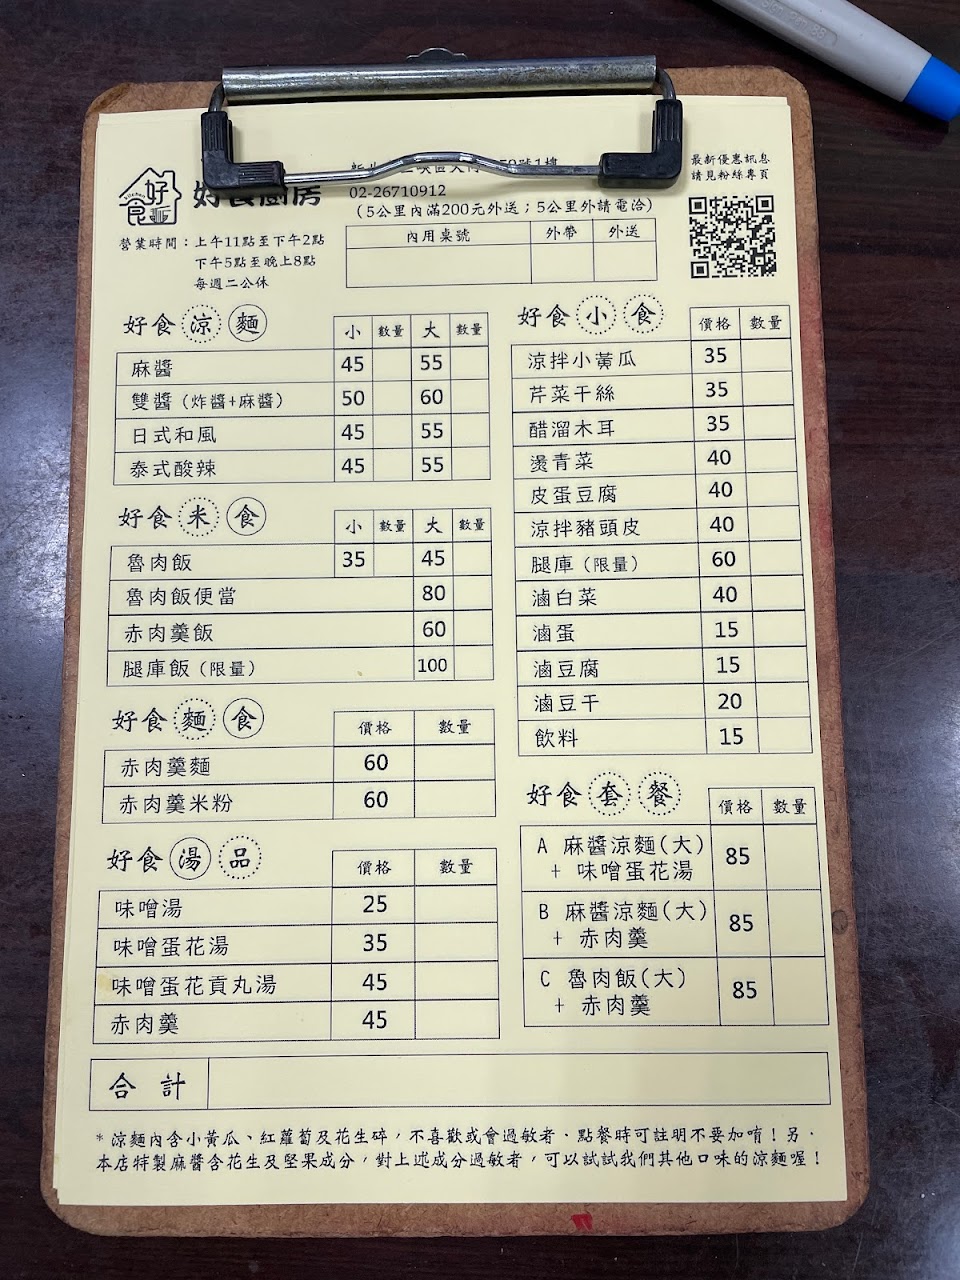 最新優惠訊息
請見粉絲專頁
02-26710912
(5公里內滿200元外送；5公里外請電洽)
好食廚房
好食
營業時間：上午11點至下午2點
下午5點至晚上8點
每週二公休
內用桌號 外帶 外送
好食涼麵 小 數量 大 數量
麻醬 45 55
雙醬(炸醬+麻醬) 50 60
日式和風 45 55
泰式酸辣 45 55
好食米食 小 數量 大 數量
魯肉飯 35 45
魯肉飯便當 80
赤肉羹飯 60
腿庫飯(限量) 100
好食麵食 價格 數量
赤肉羹麵 60
赤肉羹米粉 60
好食湯品 價格 數量
味噌湯 25
味噌蛋花湯 35
味噌蛋花貢丸湯 45
赤肉羹 45
好食小食 價格 數量
涼拌小黃瓜 35
芹菜干絲 35
醋溜木耳 35
燙青菜 40
皮蛋豆腐 40
涼拌豬頭皮 40
腿庫(限量) 60
滷白菜 40
滷蛋 15
滷豆腐 15
滷豆干 20
飲料 15
好食套餐 價格 數量
A 麻醬涼麵(大)
+ 味噌蛋花湯 85
B 麻醬涼麵(大)
+ 赤肉羹 85
C 魯肉飯(大)
+ 赤肉羹 85
合計
*涼麵內含小黃瓜、紅蘿蔔及花生碎，不喜歡或會過敏者．點餐時可註明不要加唷！另．
本店特製麻醬含花生及堅果成分，對上述成分過敏者，可以試試我們其他口味的涼麵喔！